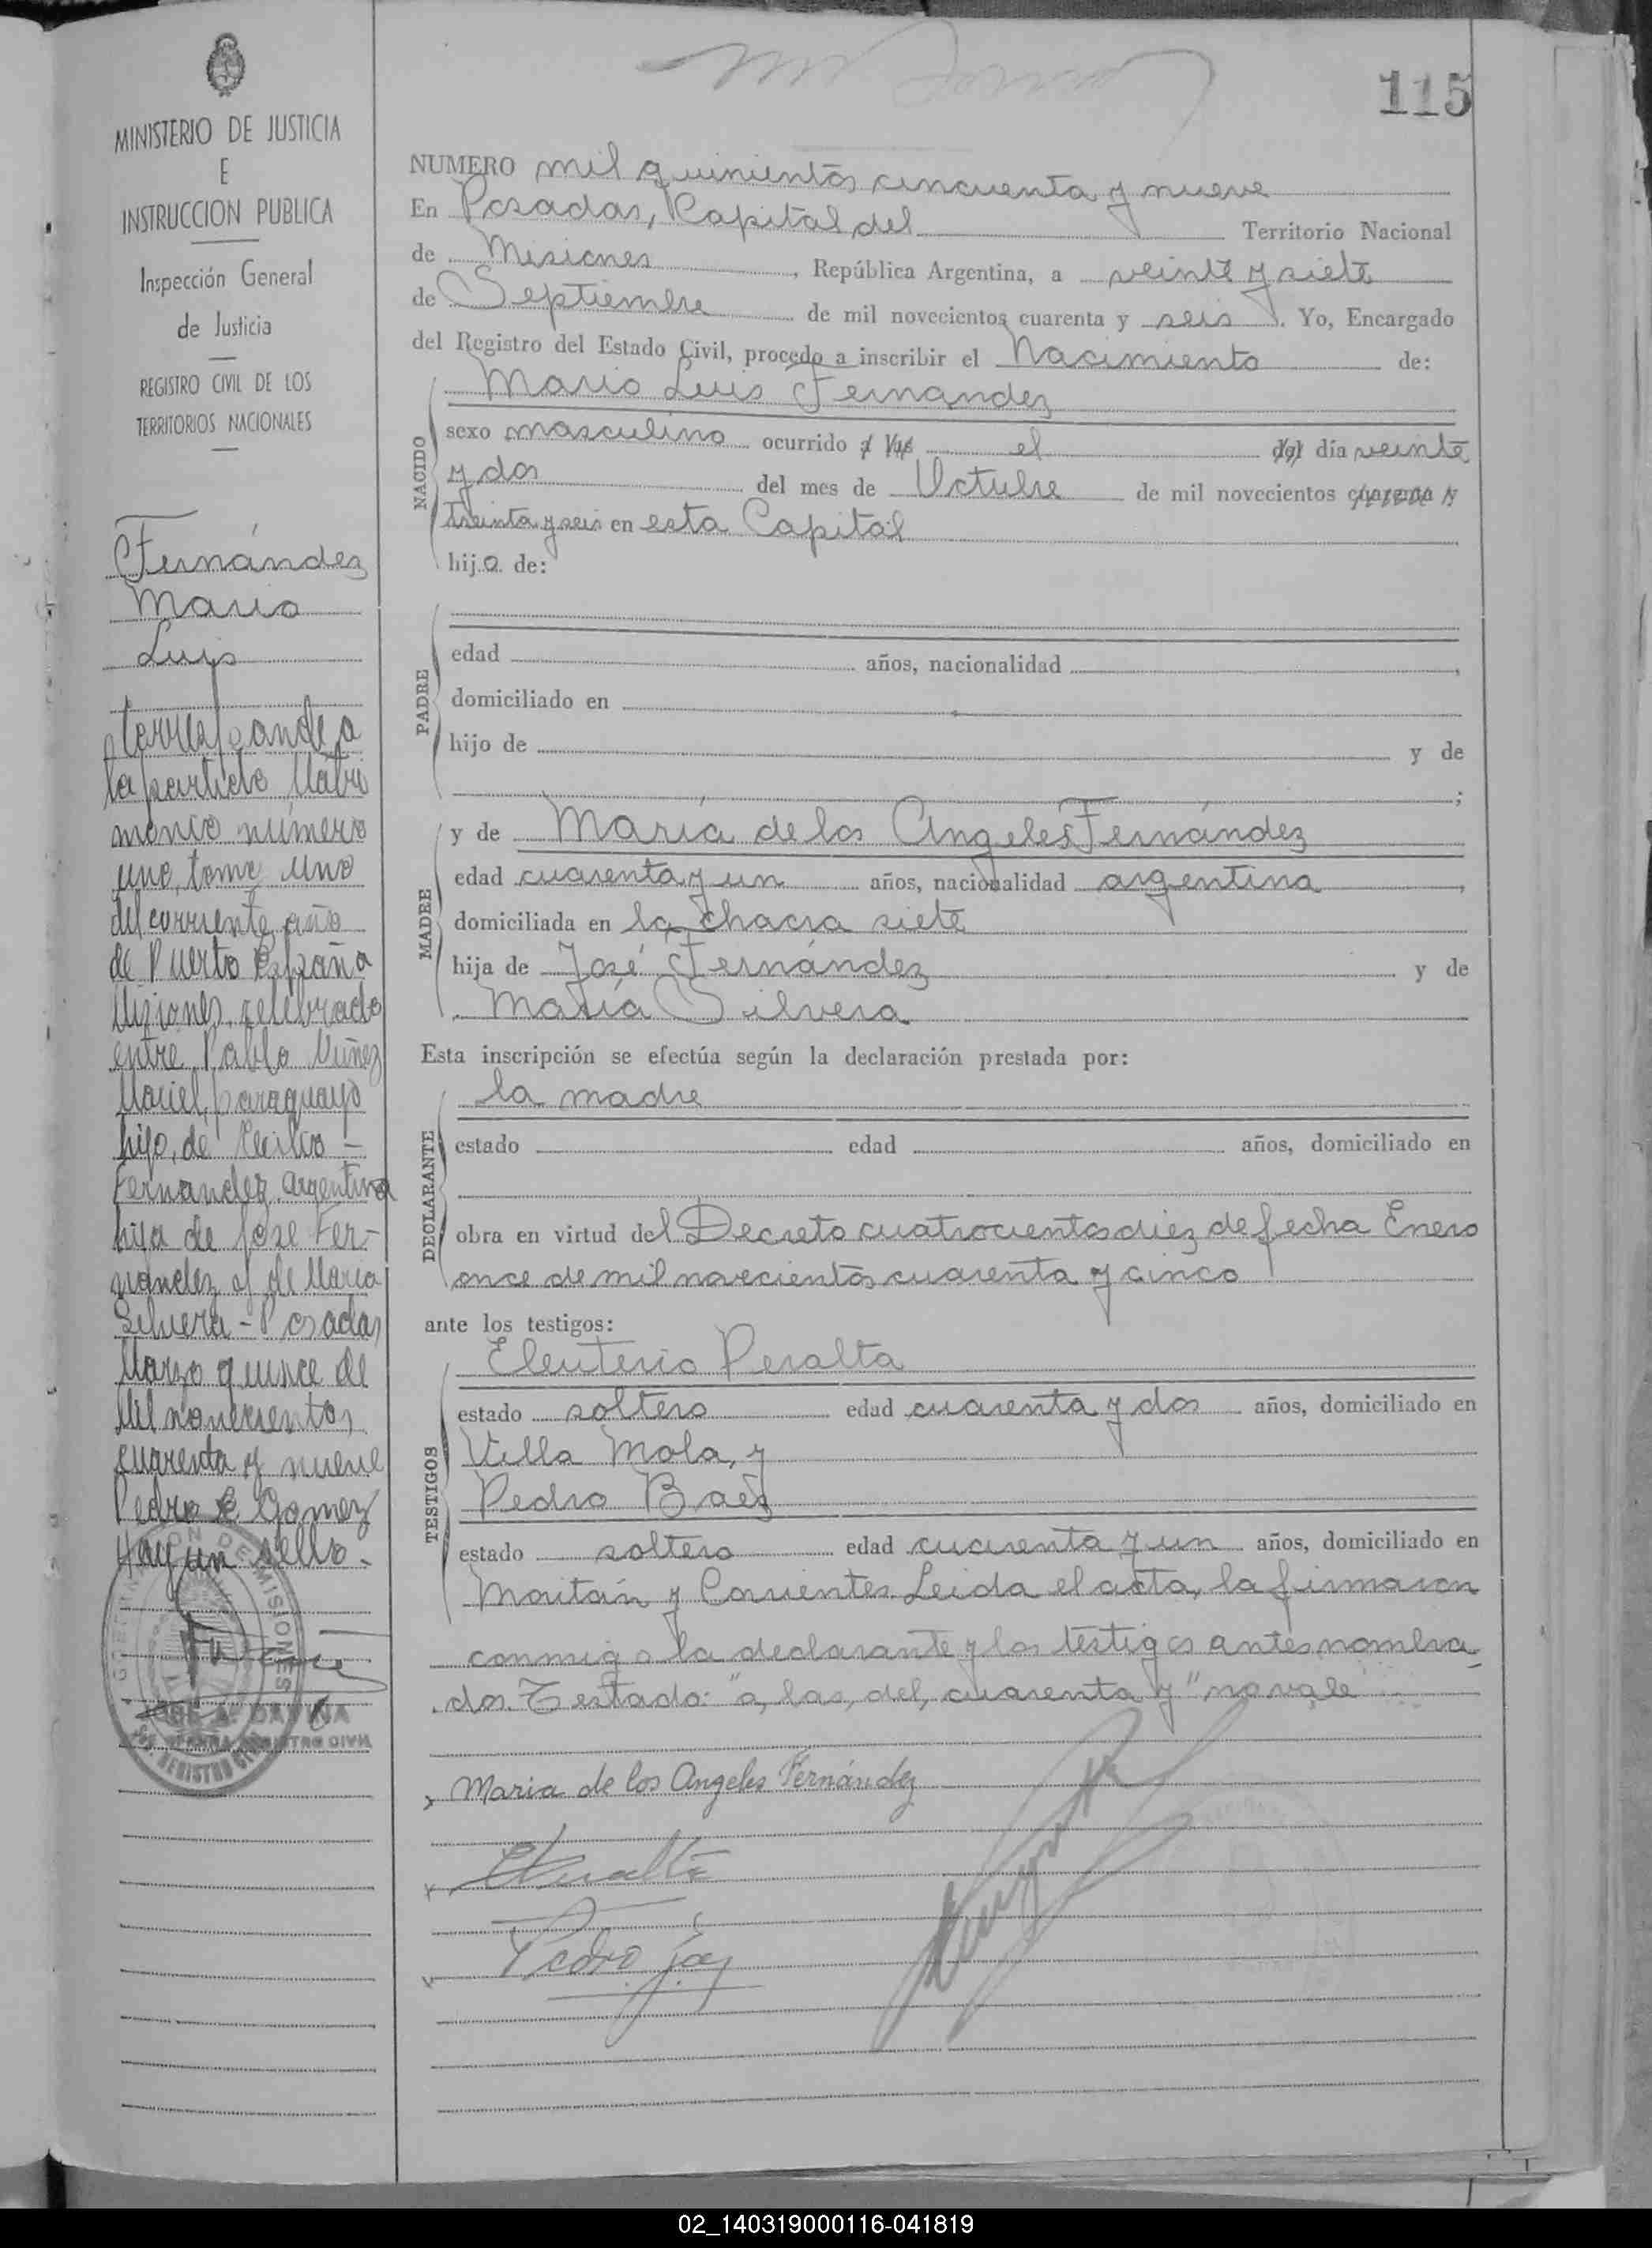 115
MINISTERIO DE JUSTICIA
E
INSTRUCCION PUBLICA
Inspección General
de Justicia
REGISTRO CIVIL DE LOS
TERRITORIOS NACIONALES
Fernández
Mario
Luis
la partida Matri
monio número
uno, tomo uno
del corriente año
de Puerto España
Misiones, celebrado
entre Pablo Núñez
Maciel, paraguayo
hijo, de Cecilio -
Fernandez argentina
hija de Jose Fer-
nandez y de Maria
Silvera - Posadas
Marzo quince de
Mil novecientos
cuarenta y nueve
Pedro E. Gomez
Hay un sello -
NUMERO mil quinientos cincuenta y nueve
En Posadas, Capital del Territorio Nacional
de Misiones, República Argentina, a veinte y siete
de Septiembre de mil novecientos cuarenta y seis. Yo, Encargado
del Registro del Estado Civil, procedo a inscribir el Nacimiento de:
NACIDO
Mario Luis Fernandez
sexo masculino ocurrido a las el del día veinte
y dos del mes de Octubre de mil novecientos cuarenta y
treinta y seis en esta Capital
hijo de:
PADRE
edad años, nacionalidad ,
domiciliado en
hijo de y de
;
MADRE
y de María de los Angeles Fernández
edad cuarenta y un años, nacionalidad argentina,
domiciliada en la chacra siete
hija de José Fernández y de
María Silvera
Esta inscripción se efectúa según la declaración prestada por:
DECLARANTE
la madre
estado edad años, domiciliado en
obra en virtud del Decreto cuatrocientos diez de fecha Enero
once de mil novecientos cuarenta y cinco
ante los testigos:
TESTIGOS
Eleuterio Peralta
estado soltero edad cuarenta y dos años, domiciliado en
Villa Mola, y
Pedro Baez
estado soltero edad cuarenta y un años, domiciliado en
Moritán y Corrientes. Leida el acta, la firmaron
conmigo la declarante y los testigos antes nombra
dos. Testado: "a, las, del, cuarenta y" no vale
Maria de los Angeles Fernández
EPeralta
Pedro
02_140319000116-041819